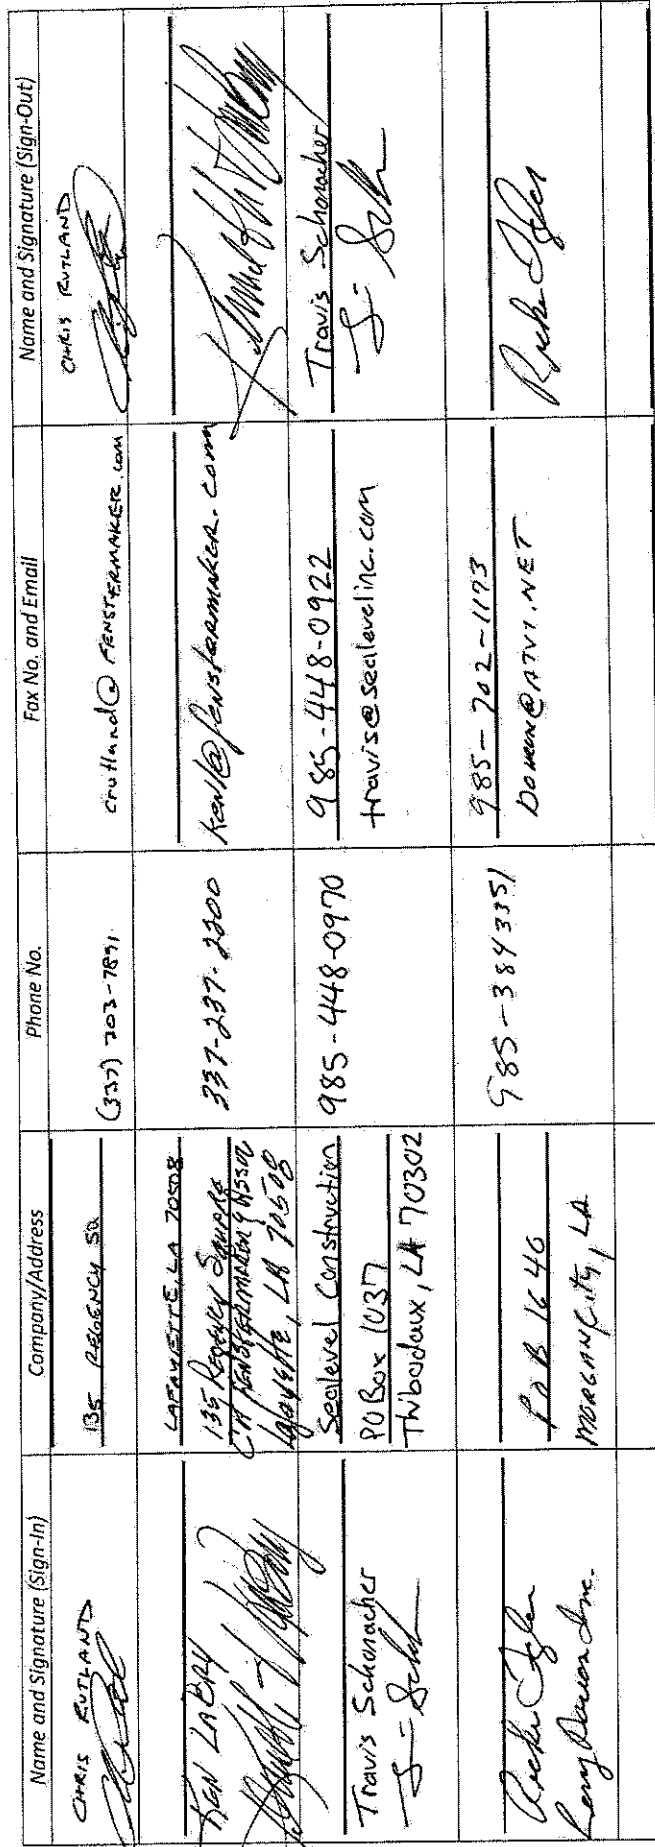 Name and Signature (Sign-In)
Company/Address
Phone No.
Fax No. and Email
Name and Signature (Sign-Out)
CHRIS RUTLAND
135 REGENCY SQ
LAFAYETTE, LA 70508
(337) 203-7891
crutland@FENSTERMAKER.com
CHRIS RUTLAND
KEN LABRY
135 Regency Square
Lafayette, LA 70508
337-237-2200
kenl@fenstermaker.com
Travis Schonacher
Sealevel Construction
PO Box 1037
Thibodaux, LA 70302
985-448-0970
985-448-0922
travis@sealevelinc.com
Travis Schonacher
P O B 1640
MORGAN City, LA
985-384 3351
985-702-1173